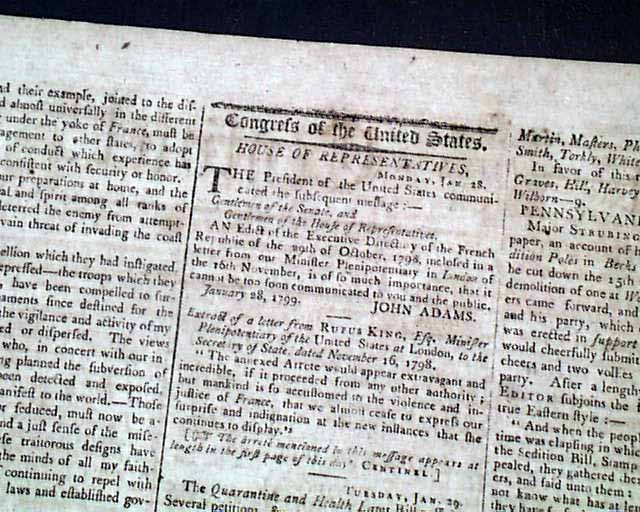 nd their example, joined to the dis-
d almost universally in the different
under the yoke of France, must be
agement to other states, to adopt
of conduct which experience has
consistent with security or honor.
ur preparations at home, and the
al and spirit among all ranks of
deterred the enemy from attempt-
vain threat of invading the coast
ellion which they had instigated.
pressed—the troops which they
have been compelled to sur-
maments since destined for the
the vigilance and activity of my
ed or dispersed. The views
who, in concert with our in
ng planned the subversion of
been detected and exposed.
anifest to the world.—Those
or seduced, must now be a-
and a just sense of the mise-
se traitorous designs have
the minds of all my faith-
continuing to repel with
laws and established gov-
Congreſs of the United States.
HOUSE OF REPRESENTATIVES,
MONDAY, JAN. 28.
THE President of the United States communi-
cated the subsequent message:—
Gentlemen of the Senate, and
Gentlemen of the House of Representatives,
AN Edict of the Executive Directory of the French
Republic of the 29th of October, 1798, inclosed in a
letter from our Minister Plenipotentiary in London of
the 16th November, is of so much importance, that it
cannot be too soon communicated to you and the public.
January 28, 1799. JOHN ADAMS.
Extract of a letter from RUFUS KING, Esq. Minister
Plenipotentiary of the United States at London, to the
Secretary of State, dated November 16, 1798.
"The annexed Arrete would appear extravagant and
incredible, if it proceeded from any other authority;
but mankind is so accustomed to the violence and in-
justice of France, that we almost cease to express our
surprise and indignation at the new instances that she
continues to display."
[The arrete mentioned in this message appears at
length in the first page of this day's CENTINEL.]
TUESDAY, JAN. 29.
The Quarantine and Health Laws
Several petitions,
Martin, Masters,
Smith, Torkly,
In favor of this
Graves, Hill,
Wilborn—9.
PENNSYLVAN
Major
paper, an account of
dition Poles in Berks
he cut down the 25th
demolition of one at
ers came forward, and
and his party, which
was erected in support
would cheerfully submit
cheers and two volleys
party. After a length
EDITOR subjoins the
true Eastern style:—
"And when the people
time was elapsing in which
the Sedition Bill, Stamp
pealed, they gathered
ers, and said unto them:
not know what has